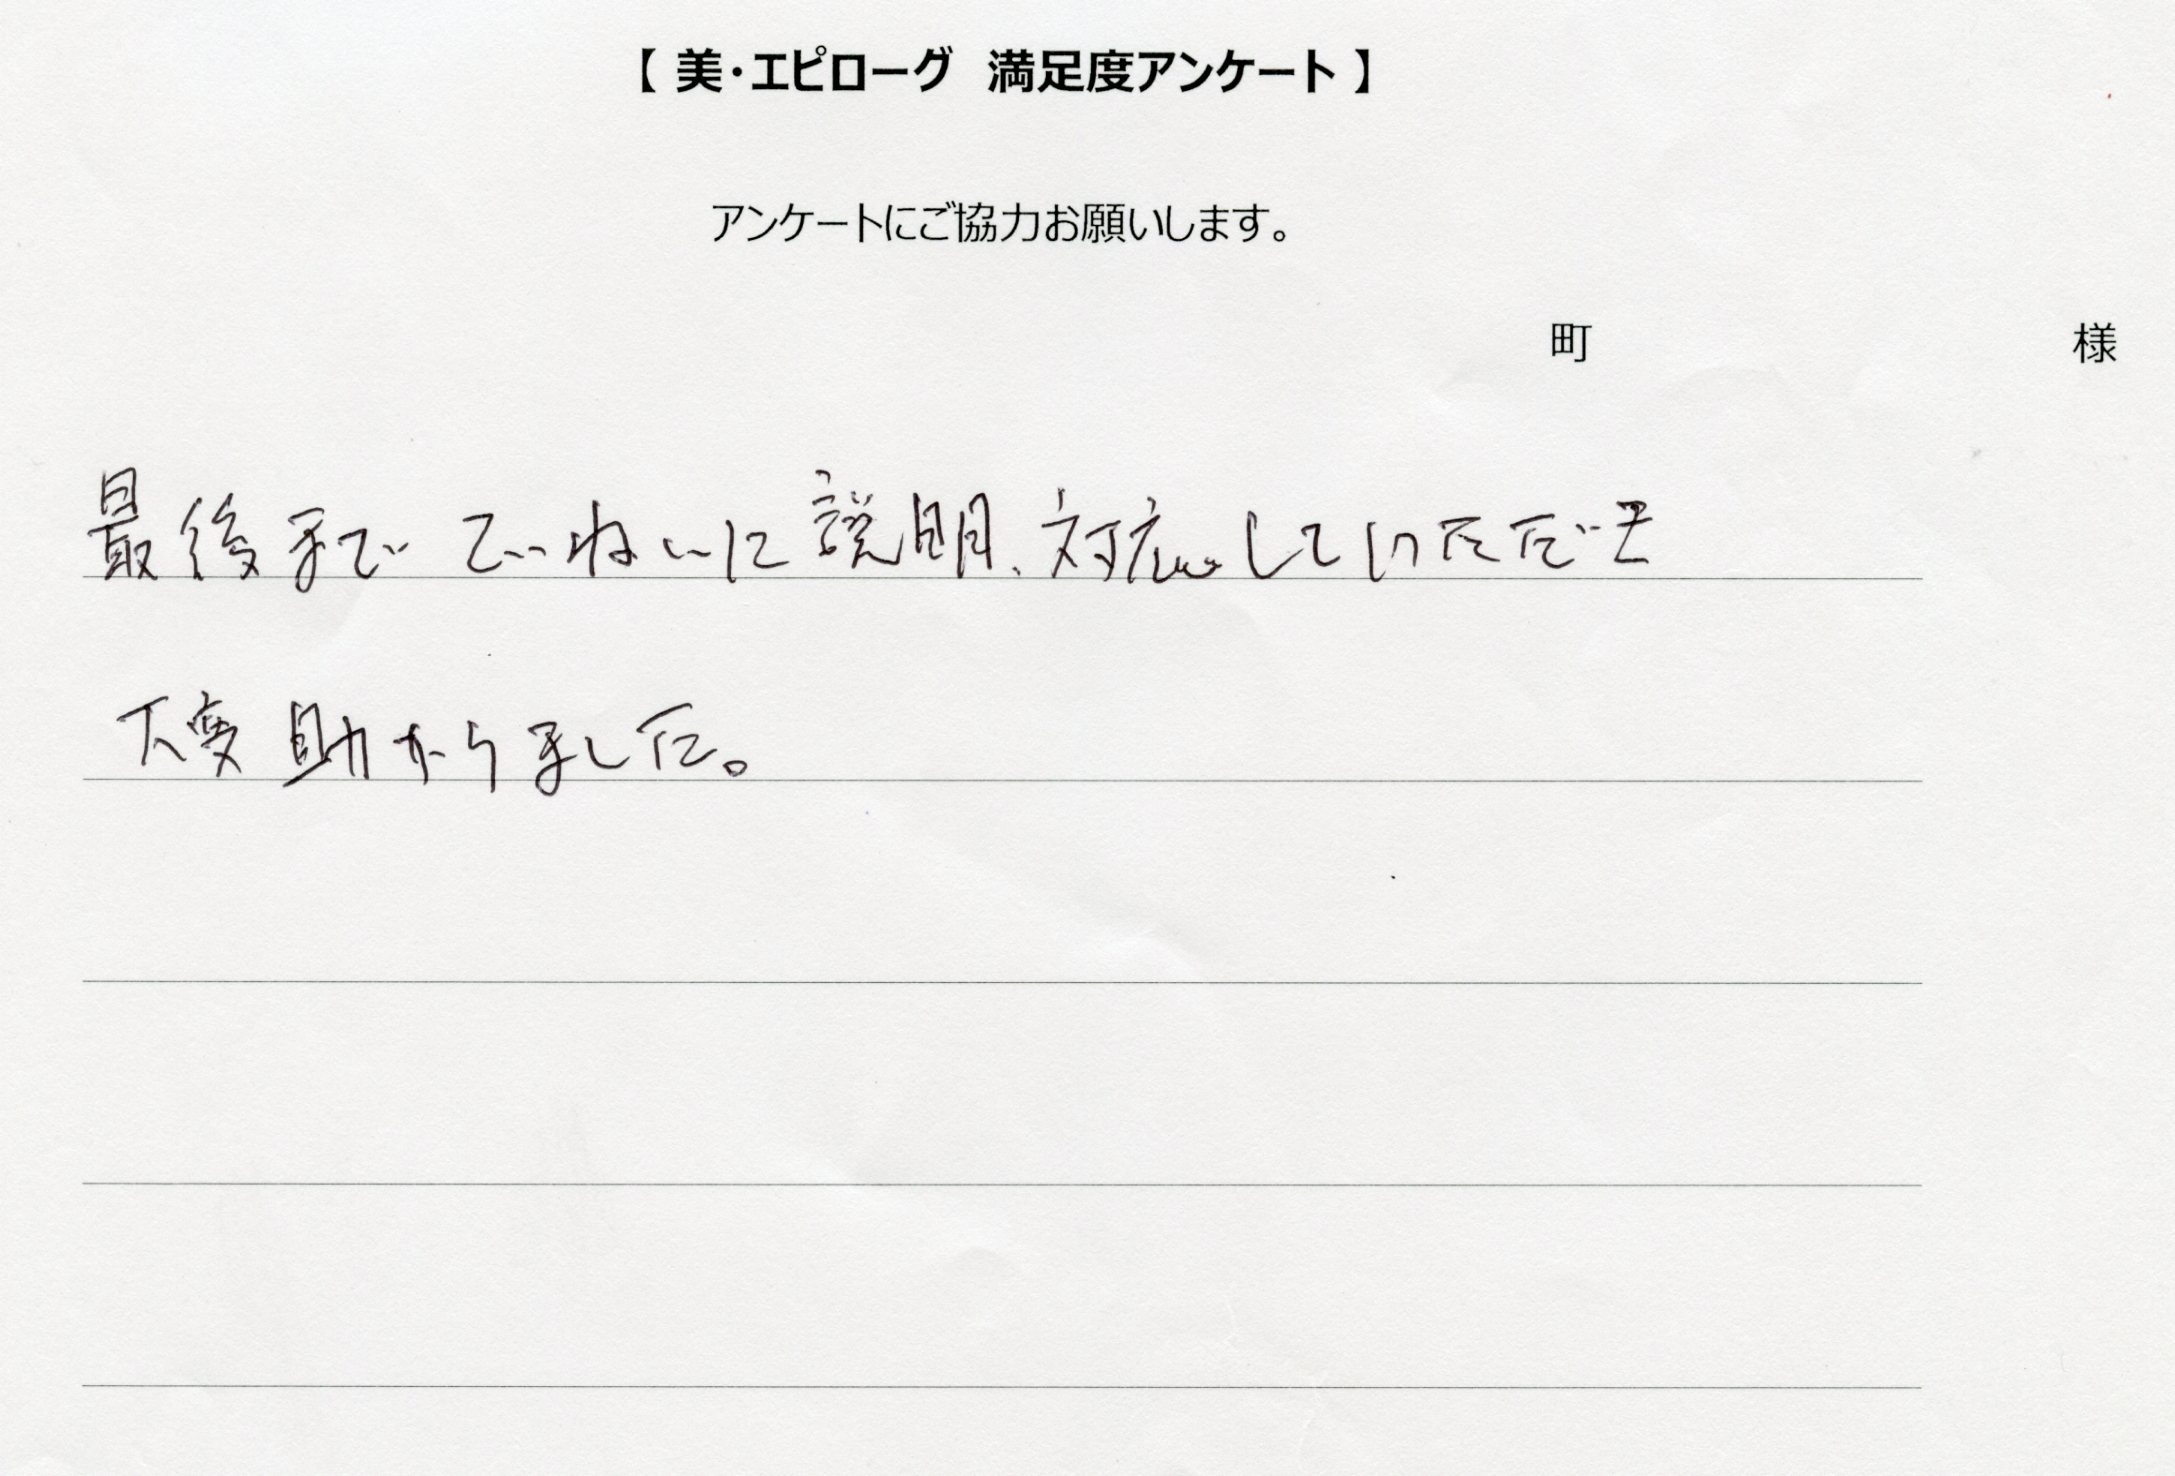 【 美・エピローグ 満足度アンケート 】
アンケートにご協力お願いします。
町 様
最後まで ていねいに説明、対応していただき
大変助かりました。